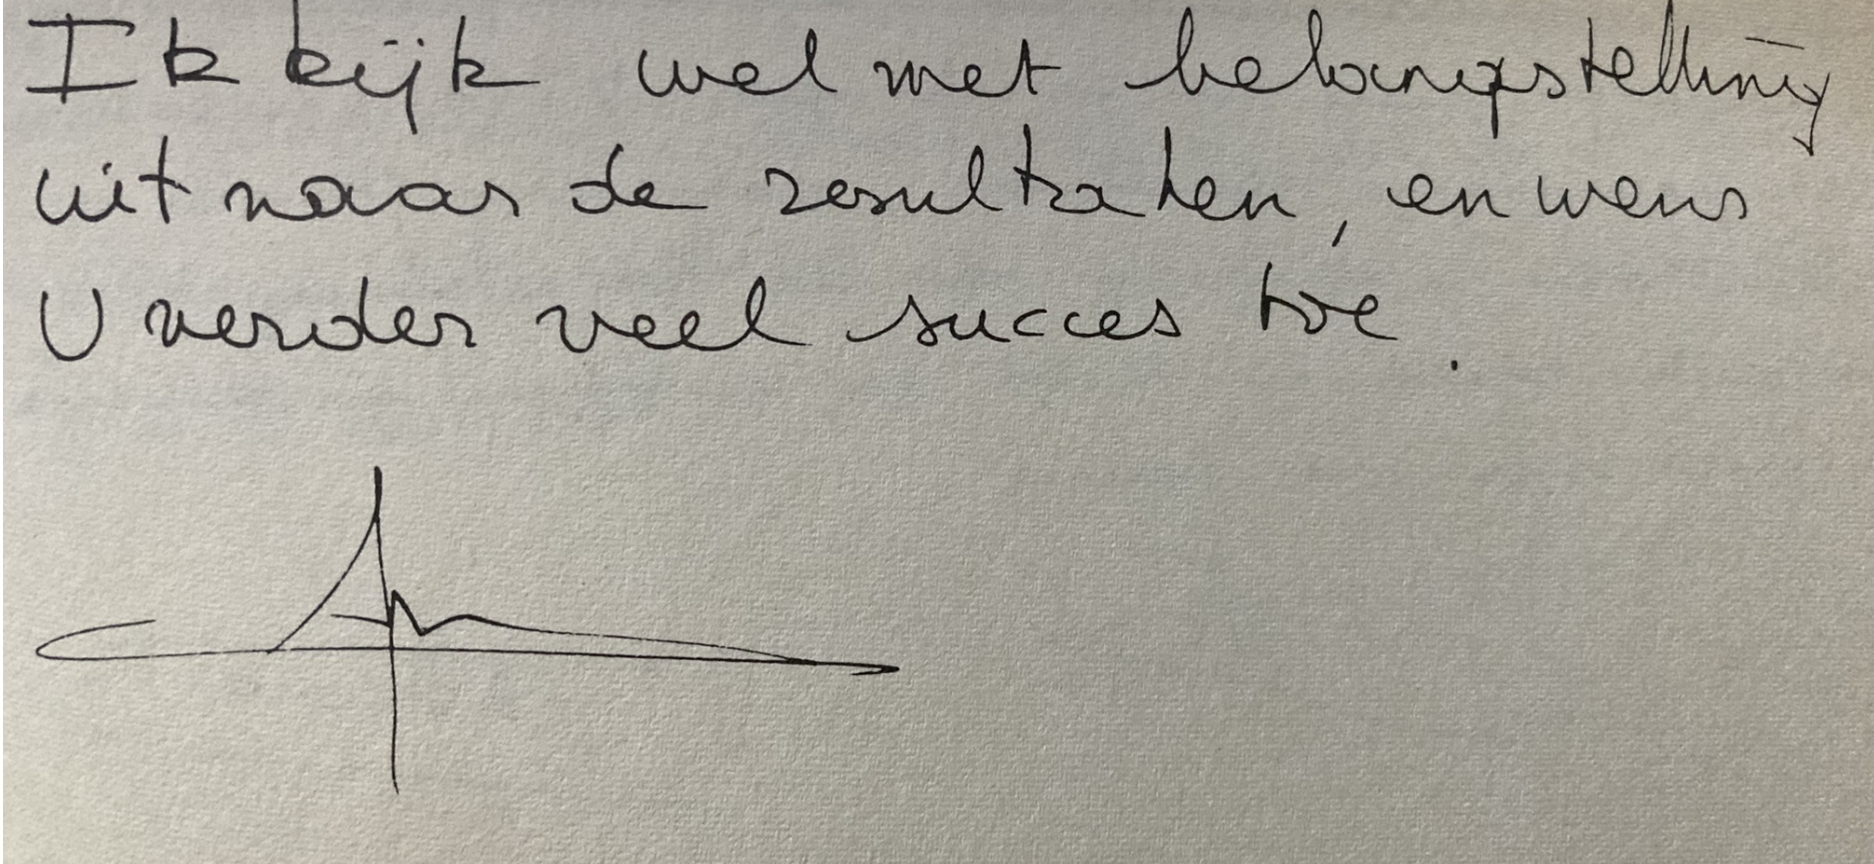 Ik kijk wel met belangstelling
uit naar de resultaten, en wens
U verder veel succes toe.